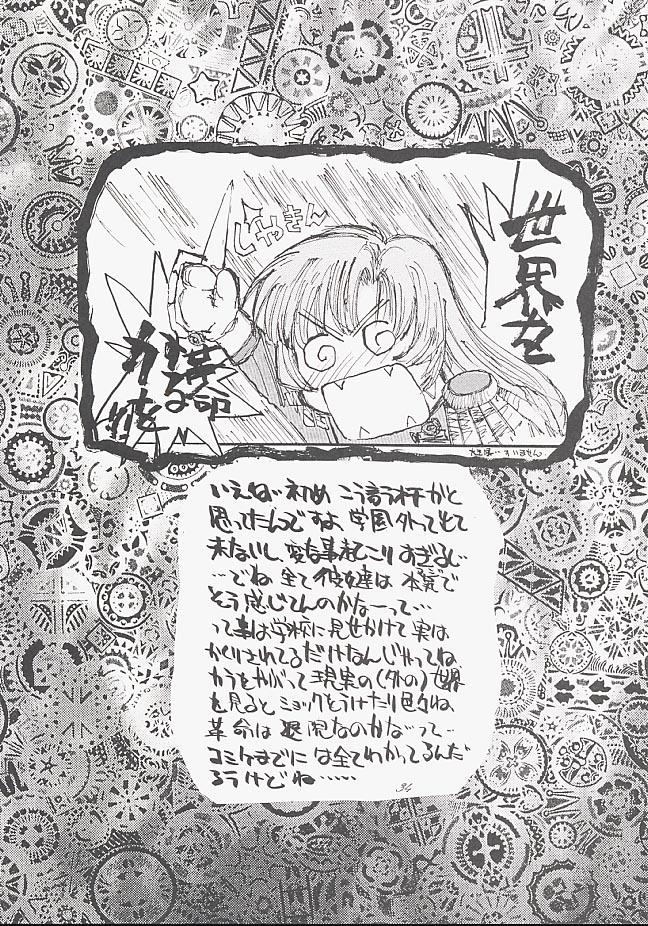 世界を
じゃきん
革命
する
力を
すいません
いえねぶ初め こう言う
思ってたんですよ 学園外って出て
来ないし、変な事起こりすぎるし…
…でね 全て彼女達は 本気で
そう感じてんのかなーって…
って事は学校に見せかけて実は
かくりされてるだけなんじゃってね
カラをやがって現実の(外の)世界
を見ると ショックをうけたり色々ね、
革命は 退院なのかなって…
コミケまでには全てわかってるんだ
ろうけどね……
34